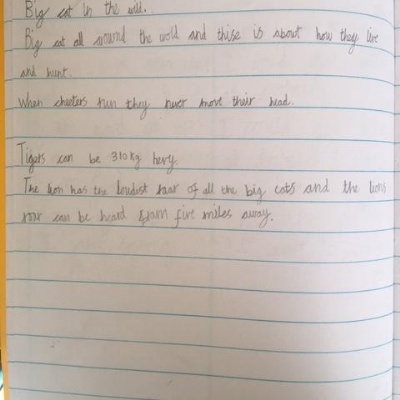 Big cat in the wild.
Big cat all around the wold and thise is about how they live
and hunt.
When cheeters run they never move their head.
Tigers can be 310kg hevy.
The lion has the loudist roar of all the big cats and the lions
roar can be heard from five miles away.